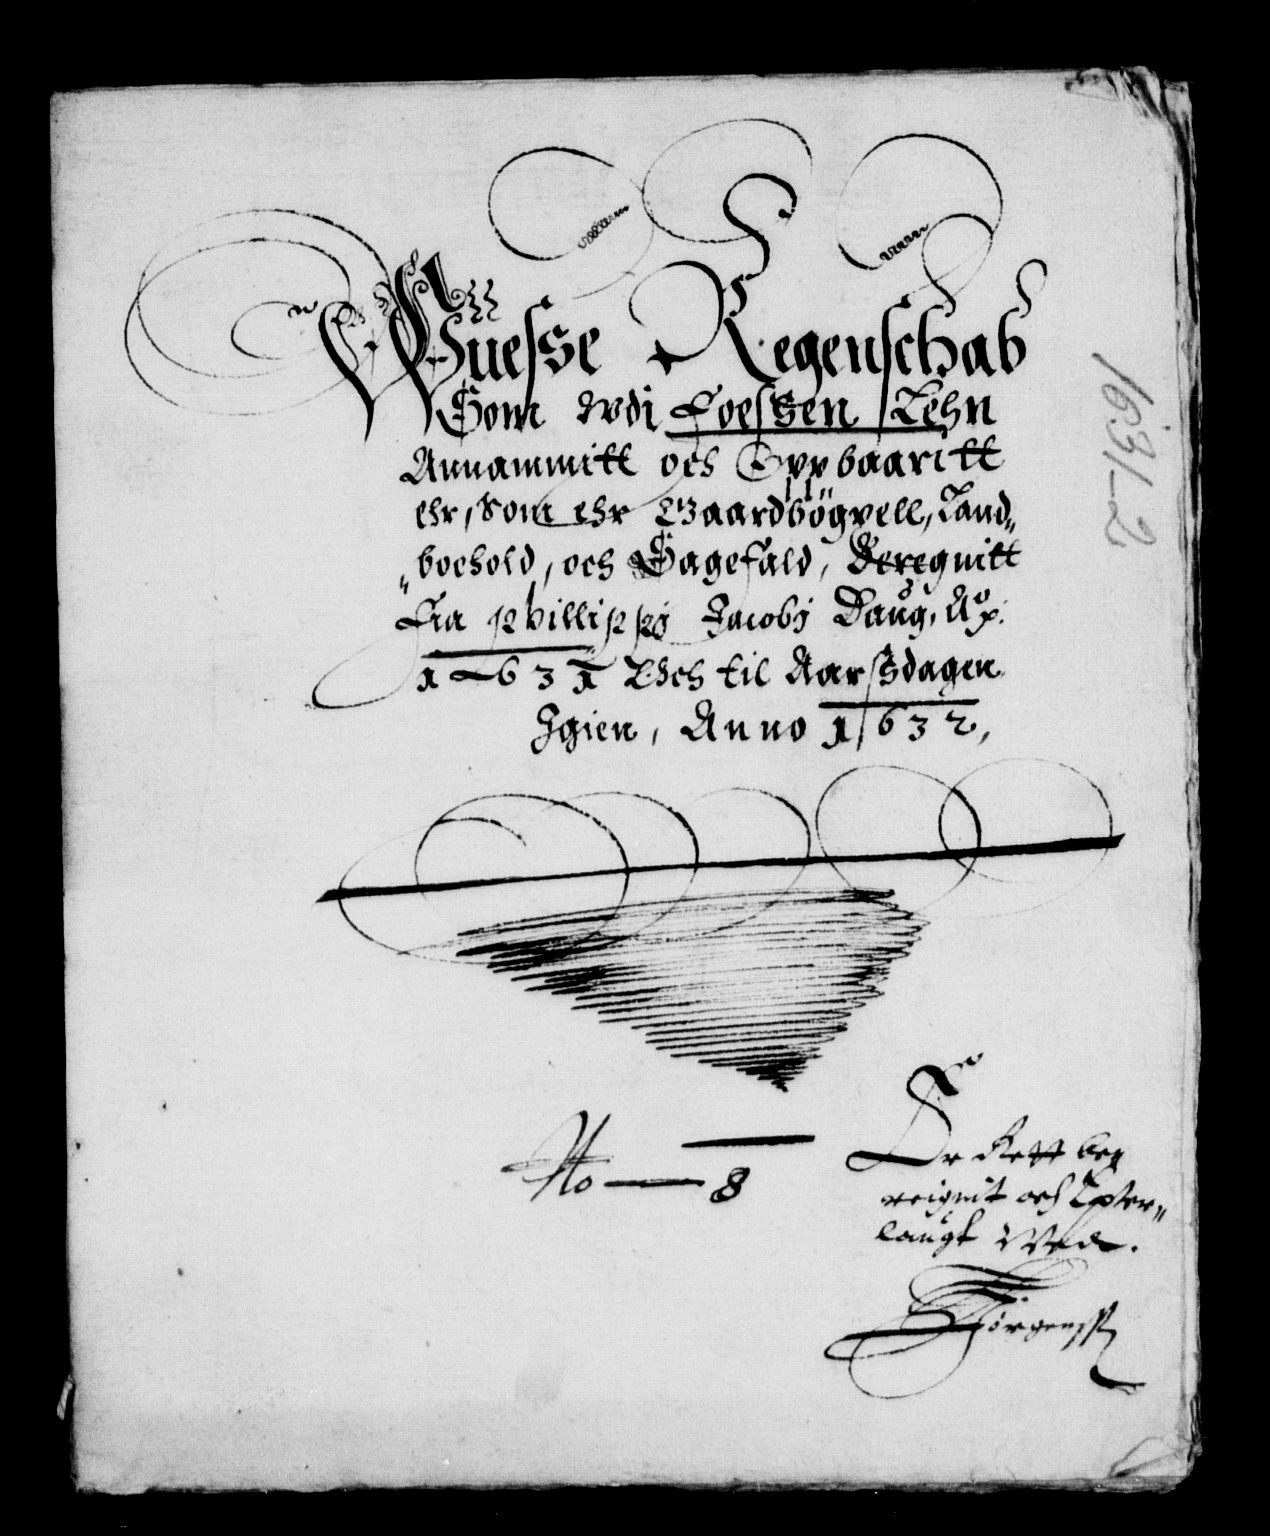 Wüesse Regenschab
Som udi Foessen Lehn
Annammitt och Oppbaaritt
ehr, som ehr Gaardbögvell, Land„
„boehold, och Sagefald, Beregnitt
Fra Phillippi Jacobi Daug, Aº
1631 Och til Aarssdagen
Igien, Anno 1632,
1631-2
No — 8
Er Rett be„
reignit och Epter„
laugt
Jörgenss